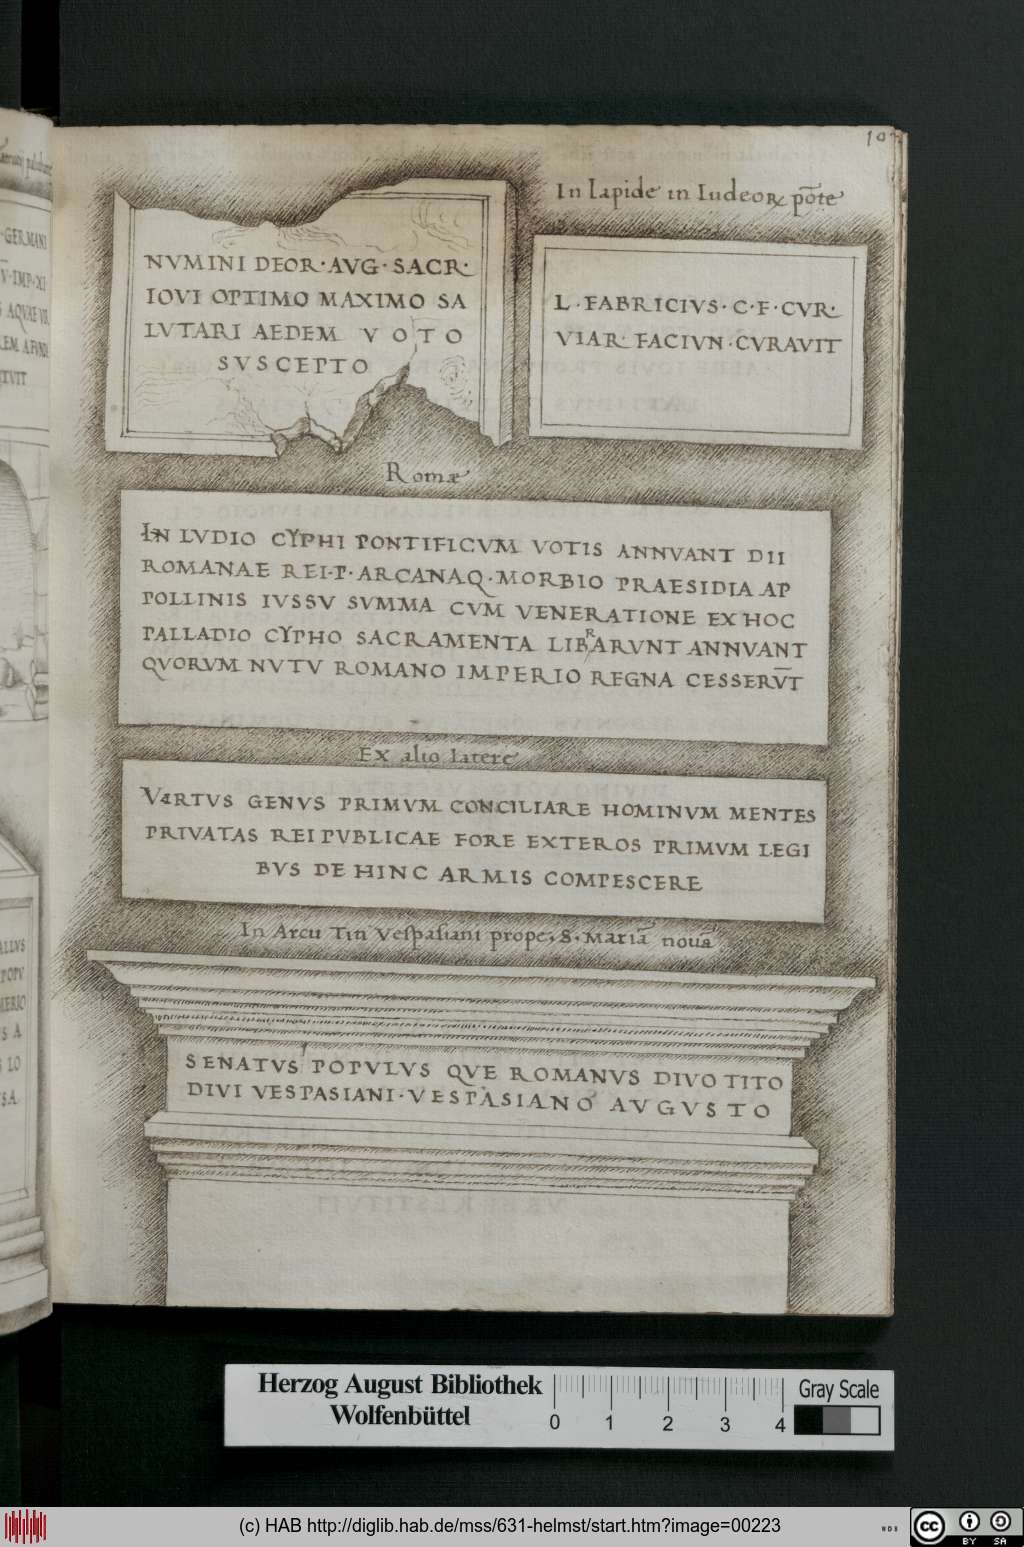 NVMINI DEOR·AVG·SACR·
IOVI OPTIMO MAXIMO SA
LVTARI AEDEM VOTO
SVSCEPTO
In lapide in Iudeoꝝ põte
L·FABRICIVS·C·F·CVR·
VIAR·FACIVN·CVRAVIT
Romæ
IN LVDIO CYPHI PONTIFICVM VOTIS ANNVANT DII
ROMANAE REI·P·ARCANAQ·MORBIO PRAESIDIA AP
POLLINIS IVSSV SVMMA CVM VENERATIONE EX HOC
PALLADIO CYPHO SACRAMENTA LIBRARVNT ANNVANT
QVORVM NVTV ROMANO IMPERIO REGNA CESSERVT̅
Ex alio latere
VIRTVS GENVS PRIMVM CONCILIARE HOMINVM MENTES
PRIVATAS REI PVBLICAE FORE EXTEROS PRIMVM LEGI
BVS DE HINC ARMIS COMPESCERE
In Arcu Tiñ Vespasiani prope·S·Mariã nouã
SENATVS POPVLVS QVE ROMANVS DIVO TITO
DIVI VESPASIANI·VESPASIANO AVGVSTO
GERMANI
V̅·IMP·XI
AQVAE VIR
TVIT
ALLVS
POPV
MERIO
S A
LO
SA
Herzog August Bibliothek
Wolfenbüttel
0 1 2 3 4
Gray Scale
(c) HAB http://diglib.hab.de/mss/631-helmst/start.htm?image=00223
WDB
cc
BY SA